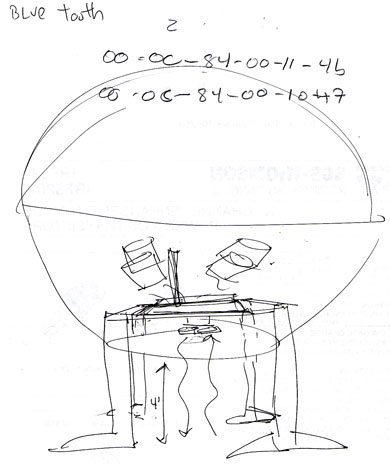 Blue tooth
2
00-0C-84-00-11-4b
00-0C-84-00-10-47
4'